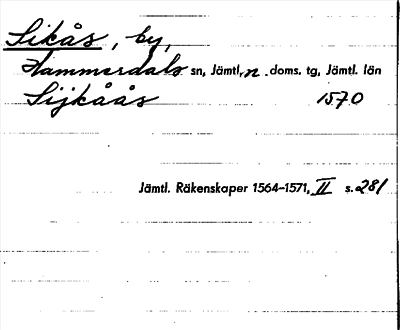 Sikås, by,
Hammerdals sn, Jämtl, n. doms. tg, Jämtl. län
Sijkåås 1570
Jämtl. Räkenskaper 1564-1571, II s. 281